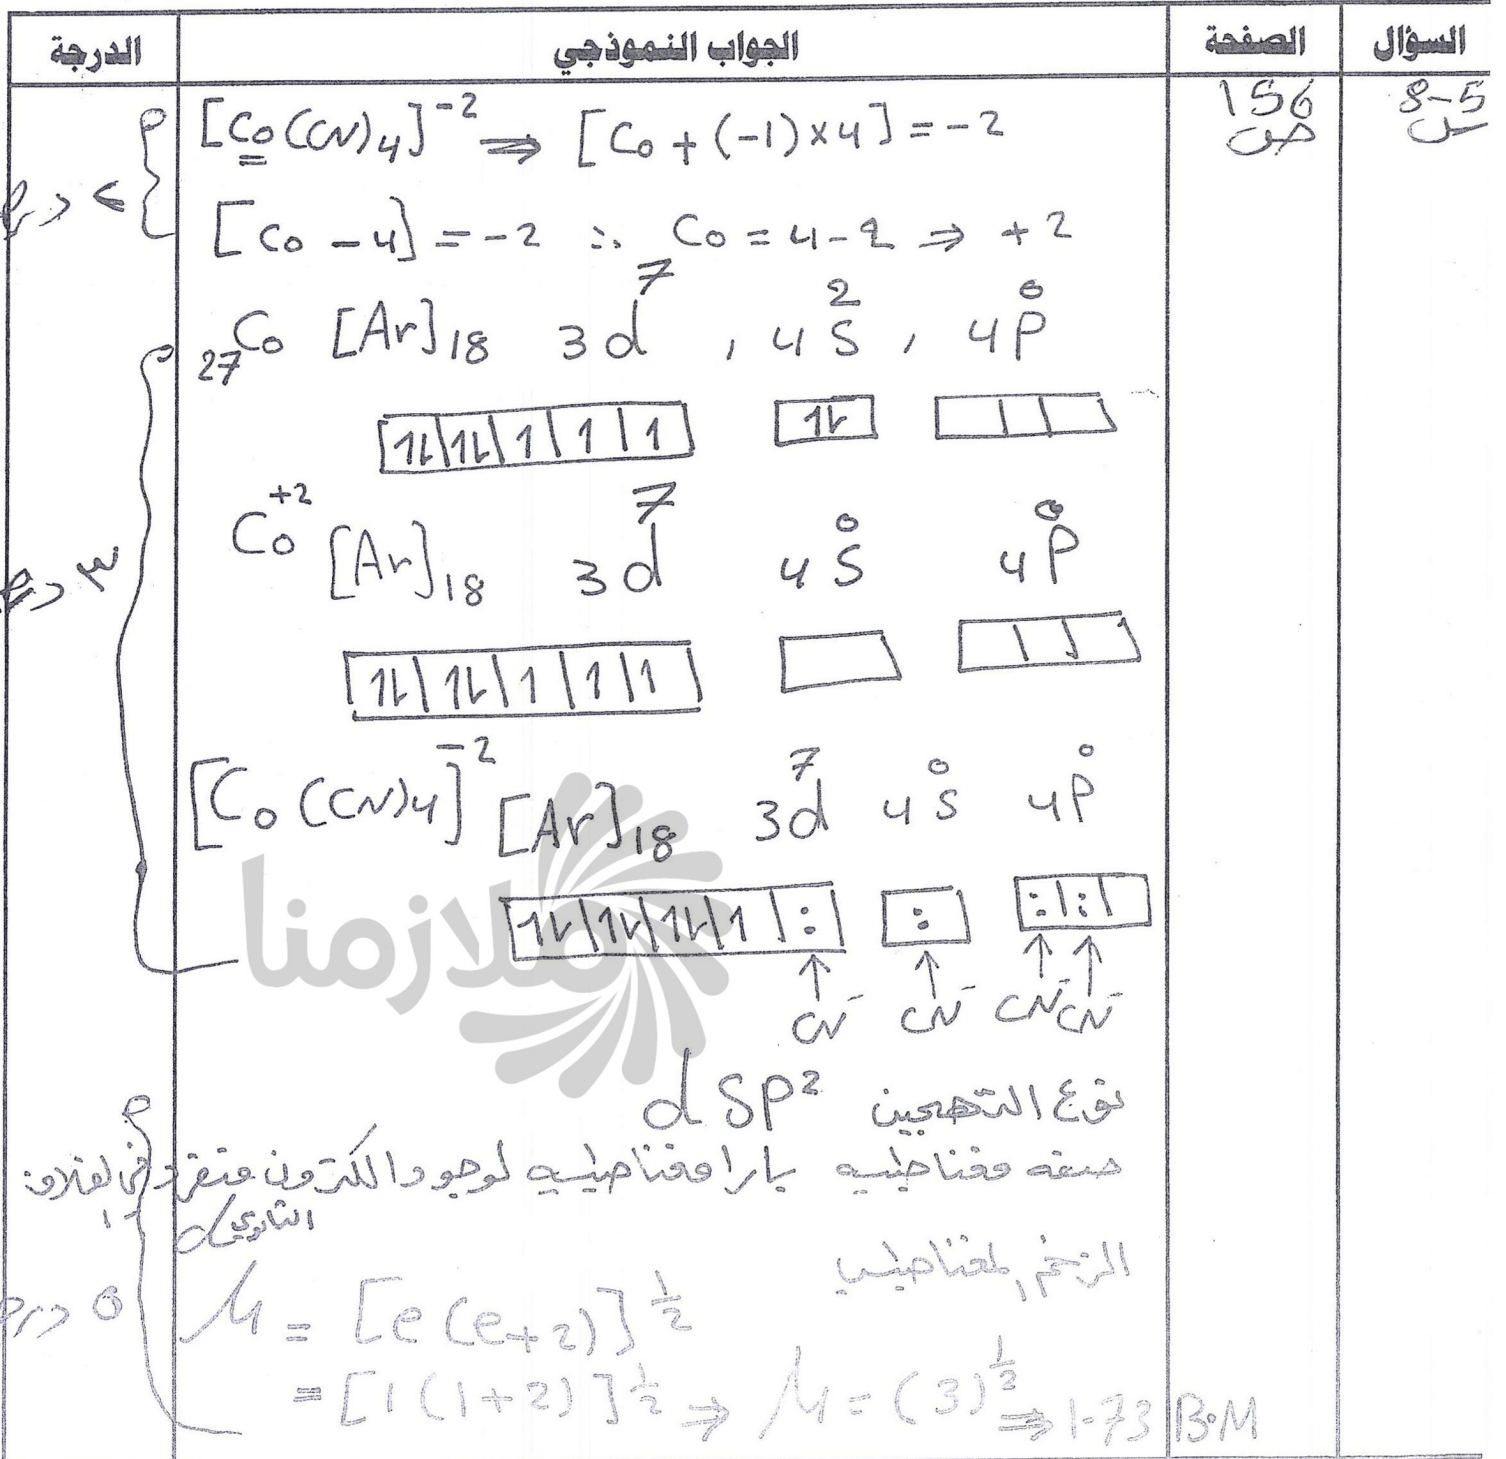 السؤال الصفحة الجواب النموذجي الدرجة
س 5-8
156 ص
[Co(CN)4]^-2 ⇒ [Co + (-1)×4] = -2
[Co - 4] = -2 ∴ Co = 4 - 2 ⇒ +2
27Co [Ar]18 3d^7 , 4s^2 , 4p^0
1L 1L 1 1 1 1L
Co^+2 [Ar]18 3d^7 4s^0 4p^0
1L 1L 1 1 1
٣
[Co(CN)4]^-2 [Ar]18 3d^7 4s^0 4p^0
1L 1L 1L 1 : : : :
↑ ↑ ↑ ↑
CN^- CN^- CN^- CN^-
ملازمنا
نوع التهجين dsp²
صفه مغناطيسيه بارا مغناطيسيه لوجود الكترون منفرد في الغلاف
الثانوي d
الزخم المغناطيسي
٥
μ = [e(e+2)]^1/2
= [1(1+2)]^1/2 ⇒ μ = (3)^1/2 ⇒ 1.73 B.M